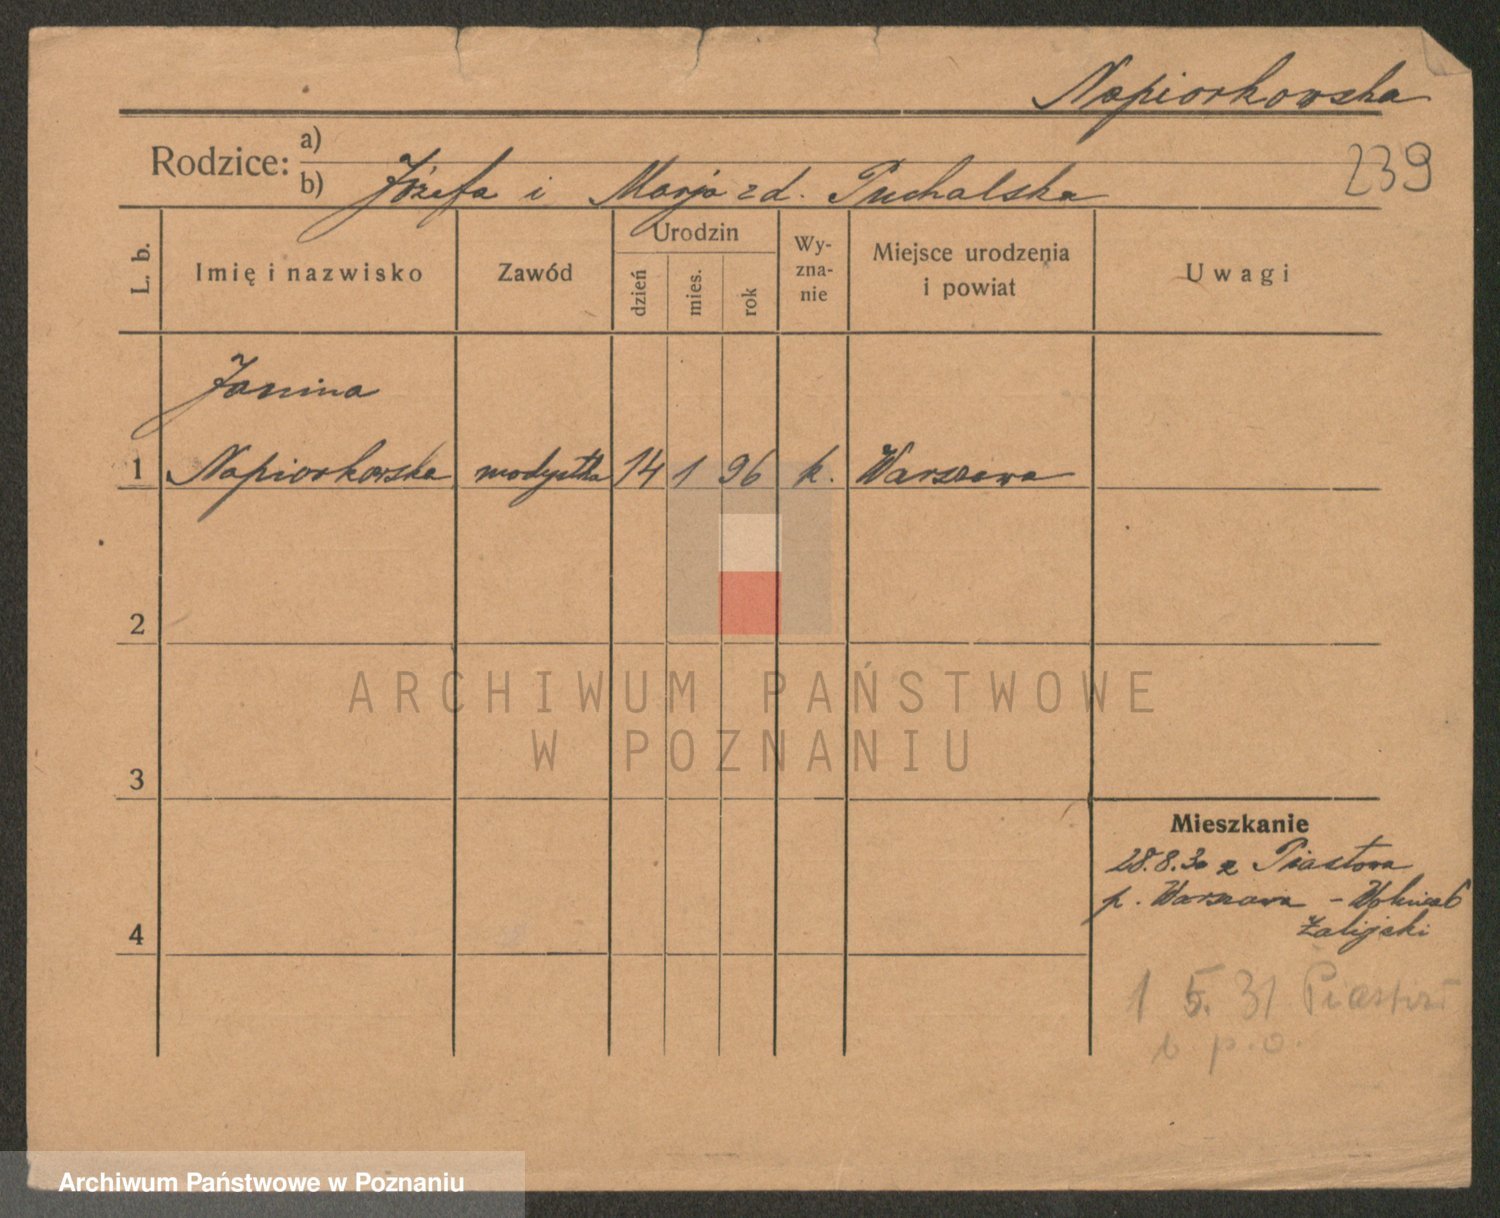 Napiorkowska
Rodzice: a)
239
b) Józefa i Marja zd. Puchalska
L. b.
Imię i nazwisko
Zawód
Urodzin
dzień
mies.
rok
Wy-
zna-
nie
Miejsce urodzenia
i powiat
Uwagi
Janina
1 Napiorkowska modystka 14 1 96 k. Warszawa
2
3
4
ARCHIWUM PAŃSTWOWE
W POZNANIU
Mieszkanie
28.8.30 z Piastowa
p. Warszawa - 6
1 5. 31 Piastów
p.o.
Archiwum Państwowe w Poznaniu